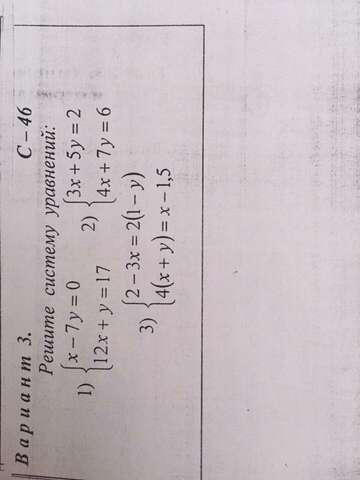 Вариант 3. С – 46
Решите систему уравнений:
1) { x − 7y = 0
12x + y = 17
2) { 3x + 5y = 2
4x + 7y = 6
3) { 2 − 3x = 2(1 − y)
4(x + y) = x − 1,5